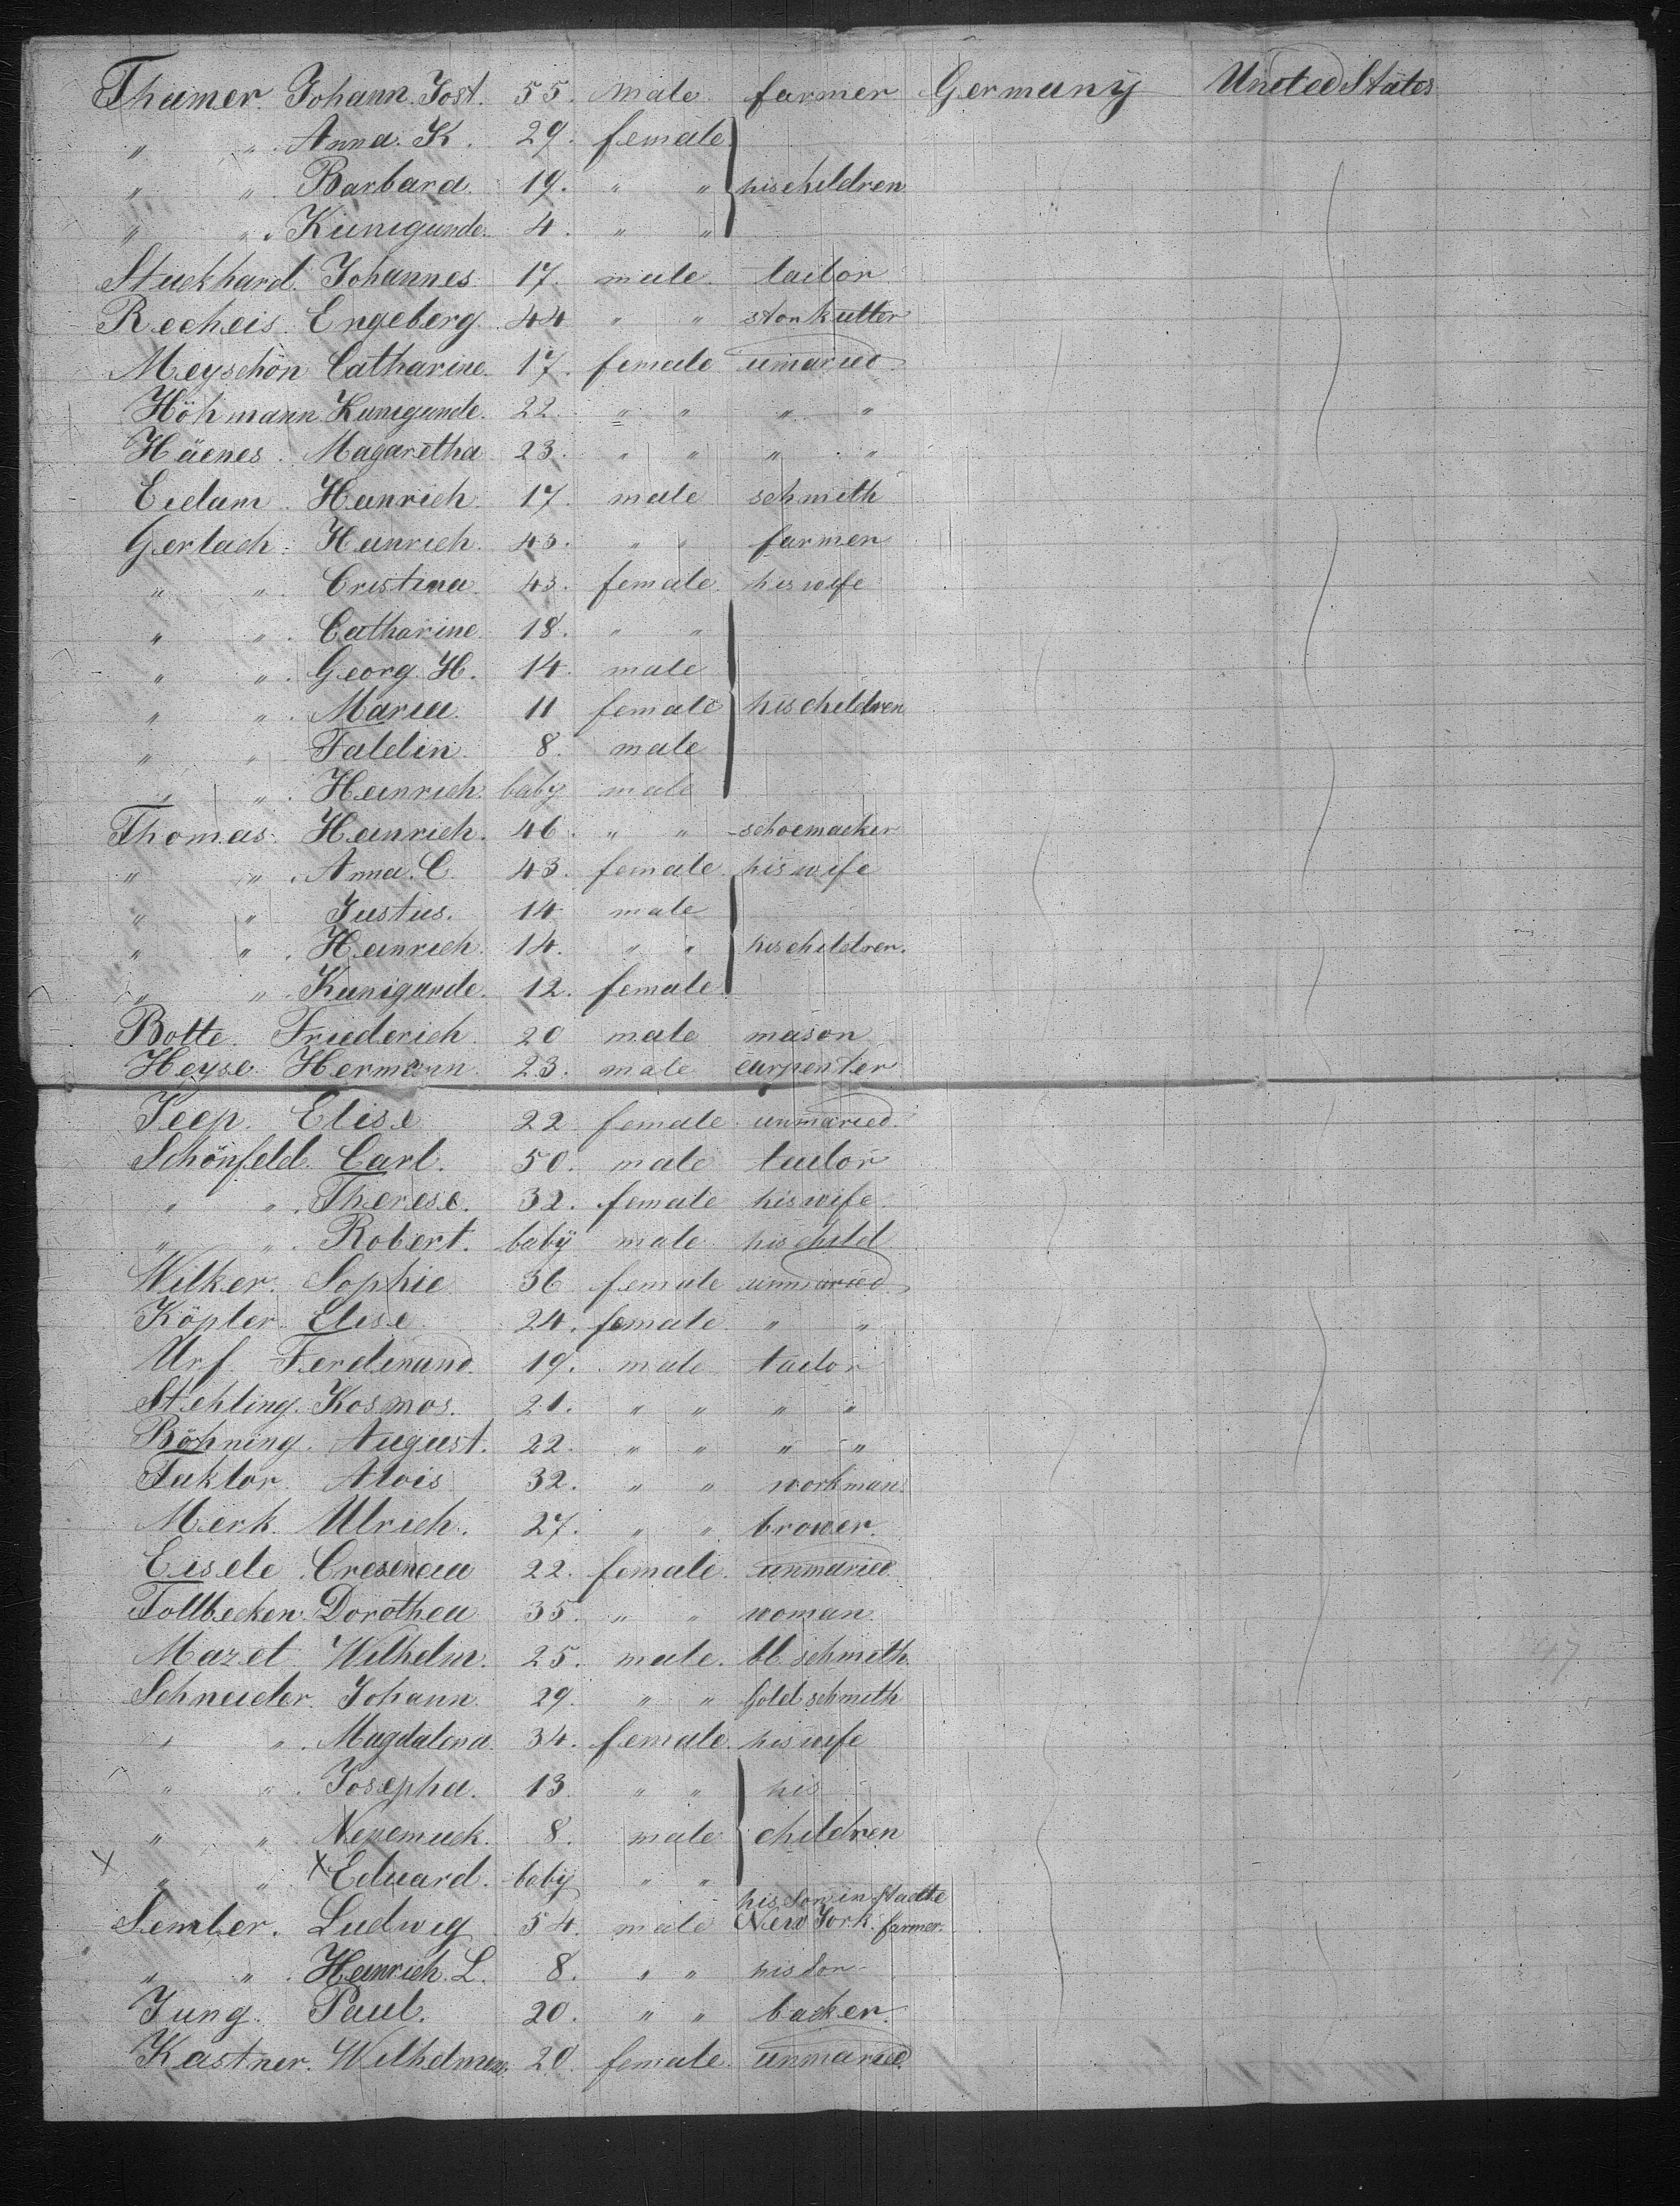 Thamer. Johann Jost. 55. Male farmer Germany United States
" " Anna. K. 29. female
" " Barbara. 19. " " his children
" " Kunigunde. 4. " "
Stuckhard. Johannes 17. male. tailor
Recheis. Engeberg. 44 " " stonkutter
Meyschön Catharine. 17. female unmaried
Höhmann Kunigunde. 22. " " " "
Häenes. Magaretha 23. " " " "
Eidam. Heinrich. 17. male schmith
Gerlach. Heinrich. 43. " " farmer
" " Cristina 43. female. his wife
" " Catharine. 18. " "
" " Georg. H. 14. male
" " Maria. 11 female his children
" " Faldin. 8. male
" " Heinrich. baby male
Thomas. Heinrich. 46. " " schoemacker
" " Anna. C. 43. female. his wife
" " Justus. 14 male
" " Heinrich. 14. " " his children.
" " Kunigunde. 12. female
Botte. Friederich. 20 male mason
Heyse. Hermann. 23. male carpenter
Jeep. Elise 22 female. unmaried.
Schönfeld. Carl. 50. male tailor
" " Therese. 32. female his wife.
" " Robert. baby male his child
Wilker. Sophie 36 female unmaried
Köpler. Elise 24. female. " "
Urf Ferdinand. 19. male tailor
Stehling. Kosmos. 21. " " " "
Böhning. August. 22. " " " "
Faktor. Alois 32. " " workman
Merk. Ulrich. 27. " " brower.
Eisele. Cresencia 22. female. unmaried
Tollbecken. Dorothea 35. " " woman.
Mazet Wilhelm. 25. male. bl. schmith
Schneider. Johann. 29. " " Gold schmith
" " Magdalena. 34. female. his wife
" " Josepha. 13 " " his
" " Nepemuck. 8. male children
x " " x Eduard. baby " "
his son in Stadte
Semler. Ludwig 54. male New York. farmer.
" " Heinrich. L. 8. " " his son
Jung. Paul. 20. " " backer.
Kastner. Wilhelmine. 20. female. unmaried.